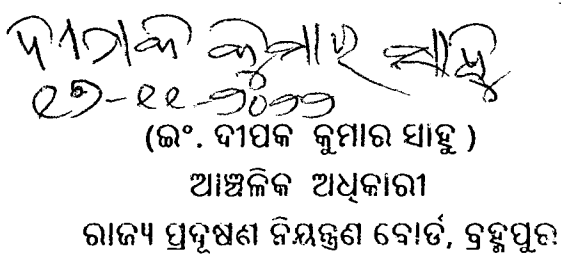 ଦୀପକ କୁମାର ସାହୁ
୧୭-୧୧-୨୦୨୨
(ଇଂ. ଦୀପକ କୁମାର ସାହୁ )
ଆଞ୍ଚଳିକ ଅଧିକାରୀ
ରାଜ୍ୟ ପ୍ରଦୂଷଣ ନିୟନ୍ତ୍ରଣ ବୋର୍ଡ, ବ୍ରହ୍ମପୁର